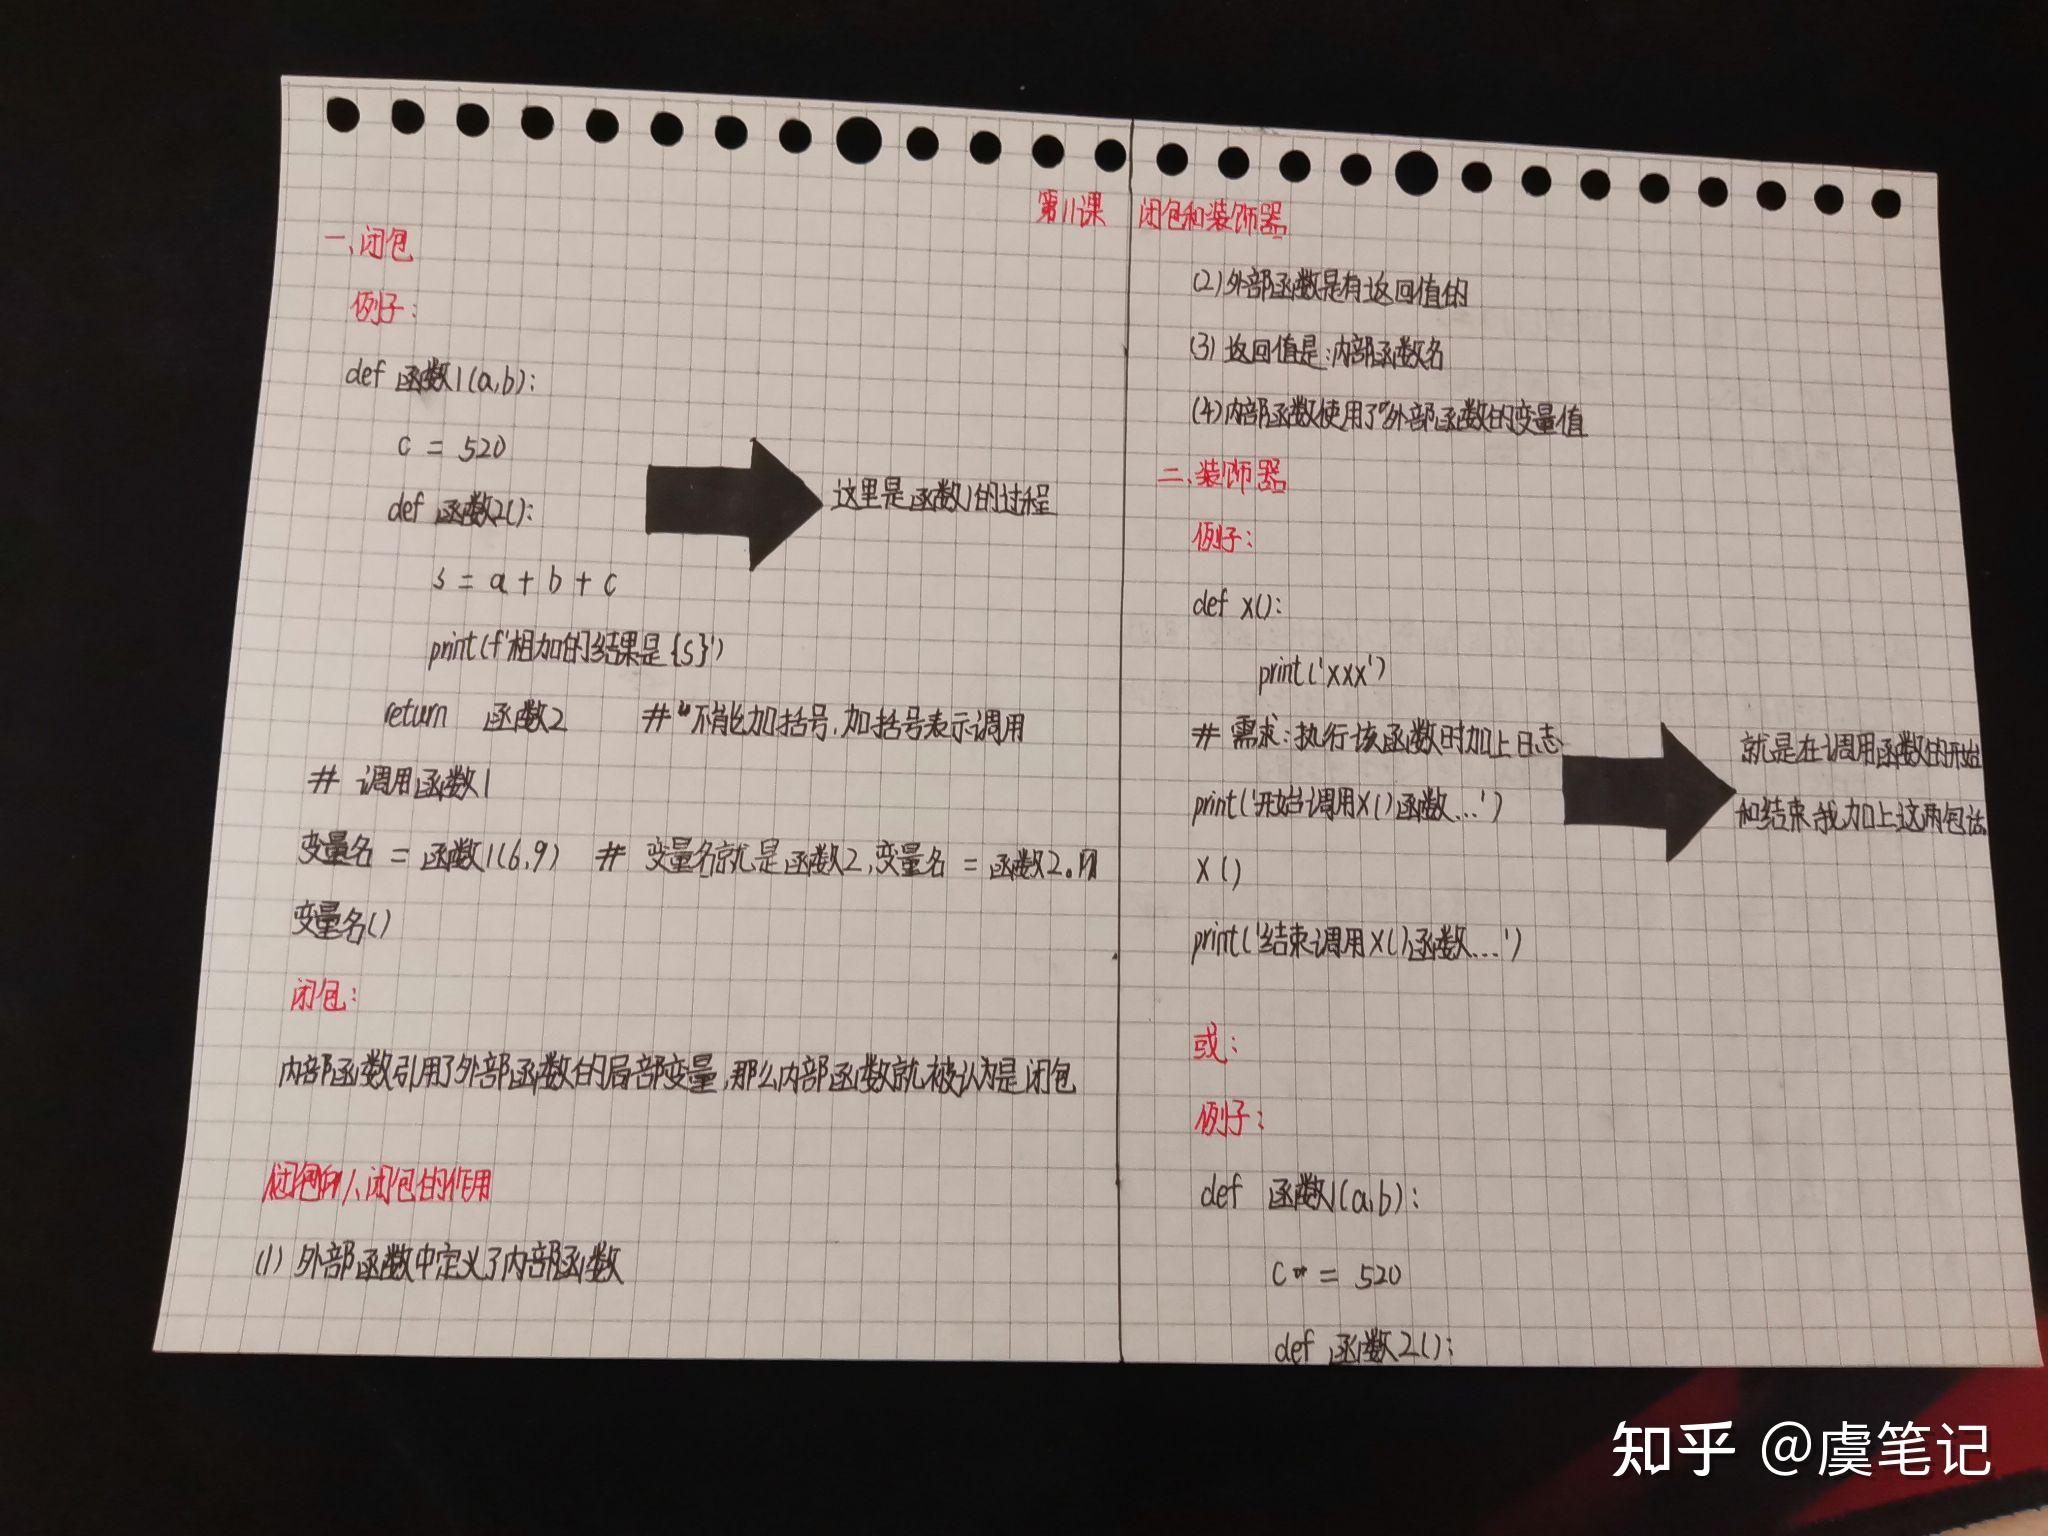 第11课 闭包和装饰器
一、闭包
例子:
def 函数1(a,b):
c = 520
def 函数2():
这里是函数1的过程
s = a + b + c
print(f'相加的结果是{s}')
return 函数2 # 不能加括号,加括号表示调用
# 调用函数1
变量名 = 函数1(6,9) # 变量名就是函数2,变量名 = 函数2。
变量名()
闭包:
内部函数引用了外部函数的局部变量,那么内部函数就被认为是闭包
1、闭包的作用
(1) 外部函数中定义了内部函数
(2)外部函数是有返回值的
(3)返回值是:内部函数名
(4)内部函数使用了外部函数的变量值
二、装饰器
例子:
def x():
print('xxx')
# 需求:执行该函数时加上日志
就是在调用函数的开始
和结束我加上这两句话
print('开始调用X()函数...')
X()
print('结束调用X()函数...')
或:
例子:
def 函数1(a,b):
c = 520
def 函数2():
知乎 @虞笔记